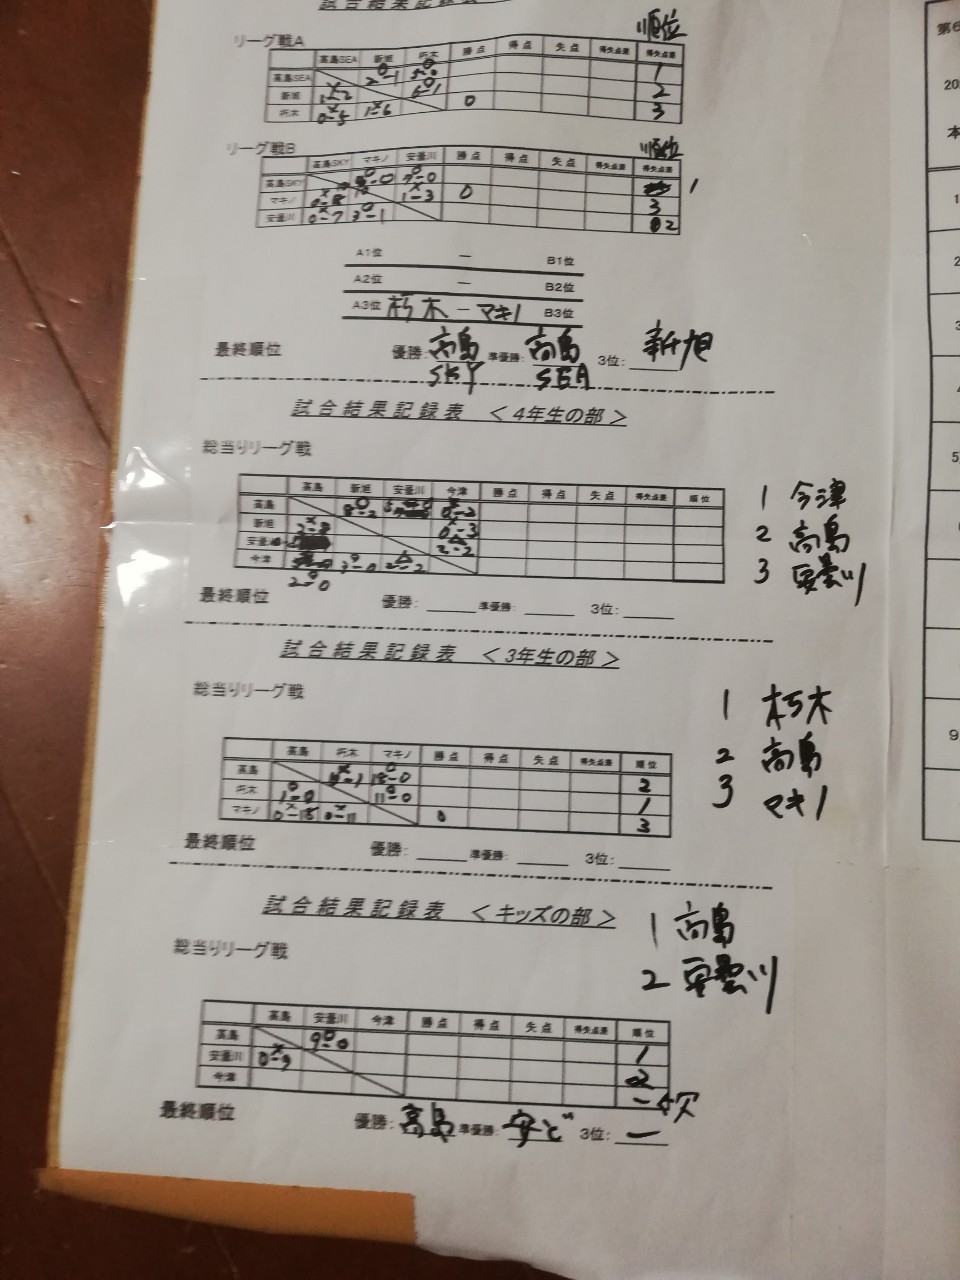 試合結果記録表
順位
リーグ戦A
高島SEA 新旭 朽木 勝点 得点 失点 得失点差 得失点差
高島SEA ○ 2-1 ○ 5-0 1
新旭 × 1-2 ○ 6-1 2
朽木 × 0-5 × 1-6 0 3
順位
リーグ戦B
高島SKY マキノ 安曇川 勝点 得点 失点 得失点差 得失点差
高島SKY ○ ○ 7-0 1
マキノ × × 1-3 0 3
安曇川 × 0-7 ○ 3-1 2
A1位 － B1位
A2位 － B2位
A3位 朽木 － マキノ B3位
最終順位 優勝: 高島SKY 準優勝: 高島SEA 3位: 新旭
試合結果記録表 ＜4年生の部＞
総当りリーグ戦
高島 新旭 安曇川 今津 勝点 得点 失点 得失点差 順位
高島 ○ 8-2 × 0-2
新旭 × 2-8 × 0-3
安曇川 △ 2-2
今津 ○ 3-0 △ 2-2
○ 2-0
1 今津
2 高島
3 安曇川
最終順位 優勝: 準優勝: 3位:
試合結果記録表 ＜3年生の部＞
総当りリーグ戦
1 朽木
2 高島
3 マキノ
高島 朽木 マキノ 勝点 得点 失点 得失点差 順位
高島 × 0-1 ○ 18-0 2
朽木 ○ 1-0 ○ 11-0 1
マキノ × 0-18 × 0-11 0 3
最終順位 優勝: 準優勝: 3位:
試合結果記録表 ＜キッズの部＞
総当りリーグ戦
1 高島
2 安曇川
高島 安曇川 今津 勝点 得点 失点 得失点差 順位
高島 ○ 9-0 1
安曇川 × 0-9 2
今津 － ←欠
最終順位 優勝: 高島 準優勝: 安ど 3位: －
第6
20
本
1
2
3
4
5
9